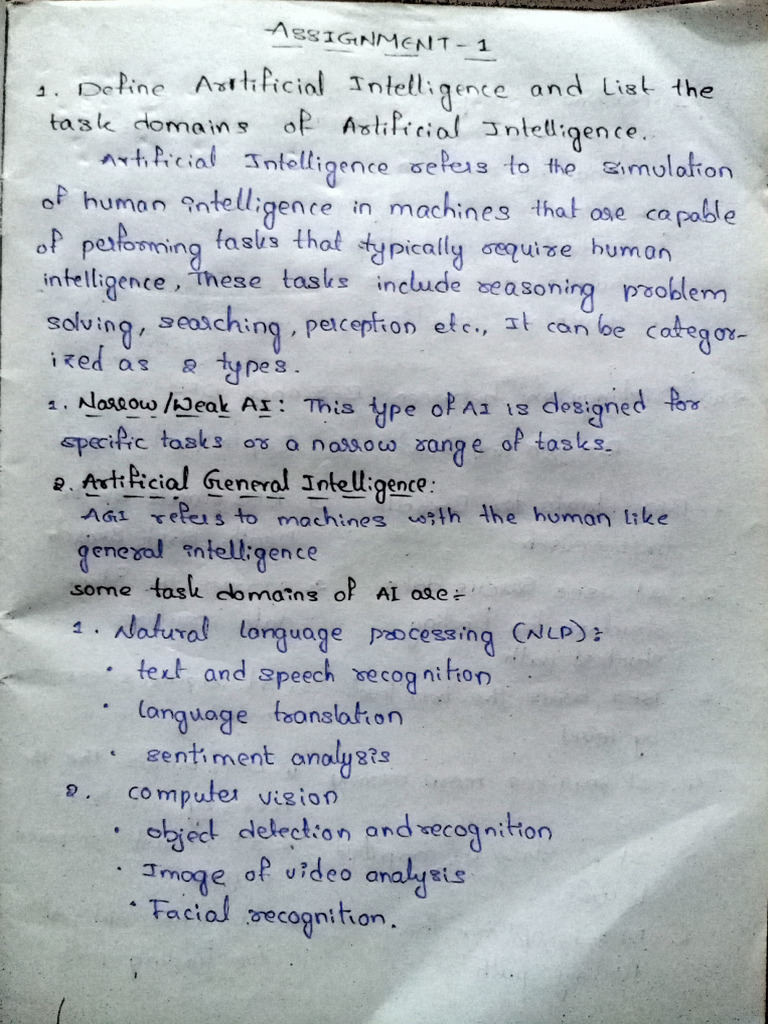 ASSIGNMENT-1
1. Define Artificial Intelligence and List the
task domains of Artificial Intelligence.
Artificial Intelligence refers to the simulation
of human intelligence in machines that are capable
of performing tasks that typically require human
intelligence, These tasks include reasoning problem
solving, searching, perception etc., It can be categor-
ized as 2 types.
1. Narrow/Weak AI: This type of AI is designed for
specific tasks or a narrow range of tasks.
2. Artificial General Intelligence:
AGI refers to machines with the human like
general intelligence
some task domains of AI are:-
1. Natural language processing (NLP):
• text and speech recognition
• language translation
• sentiment analysis
2. computer vision
• object detection and recognition
• Image of video analysis
• Facial recognition.